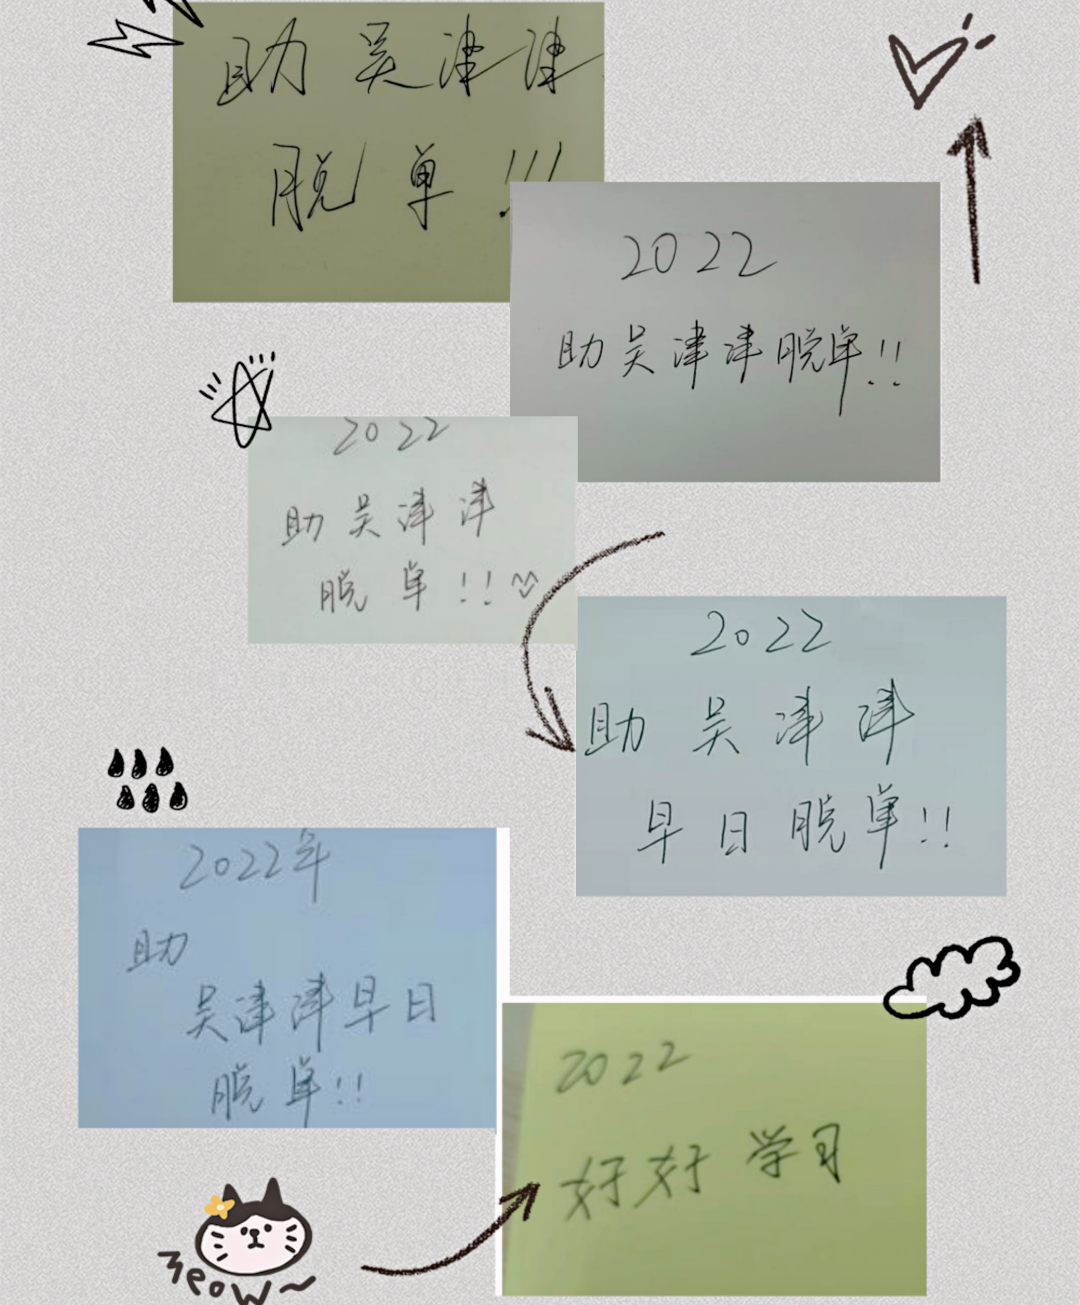 助吴津津
脱单!!!
2022
助吴津津脱单!!
2022
助吴津津
脱单!!
2022
助吴津津
早日脱单!!
2022年
助
吴津津早日
脱单!!
2022
好好学习
meow~